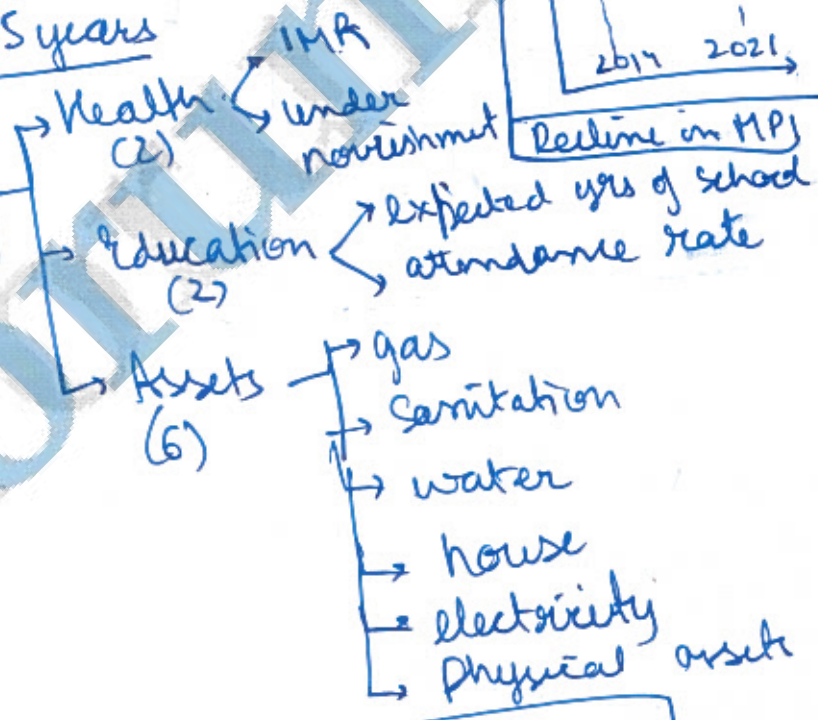 5 years
2014 2021
Decline in MPI
Health
(2)
IMR
under
nourishment
Education
(2)
expected yrs of school
attendance rate
Assets
(6)
gas
Sanitation
water
house
electricity
Physical assets